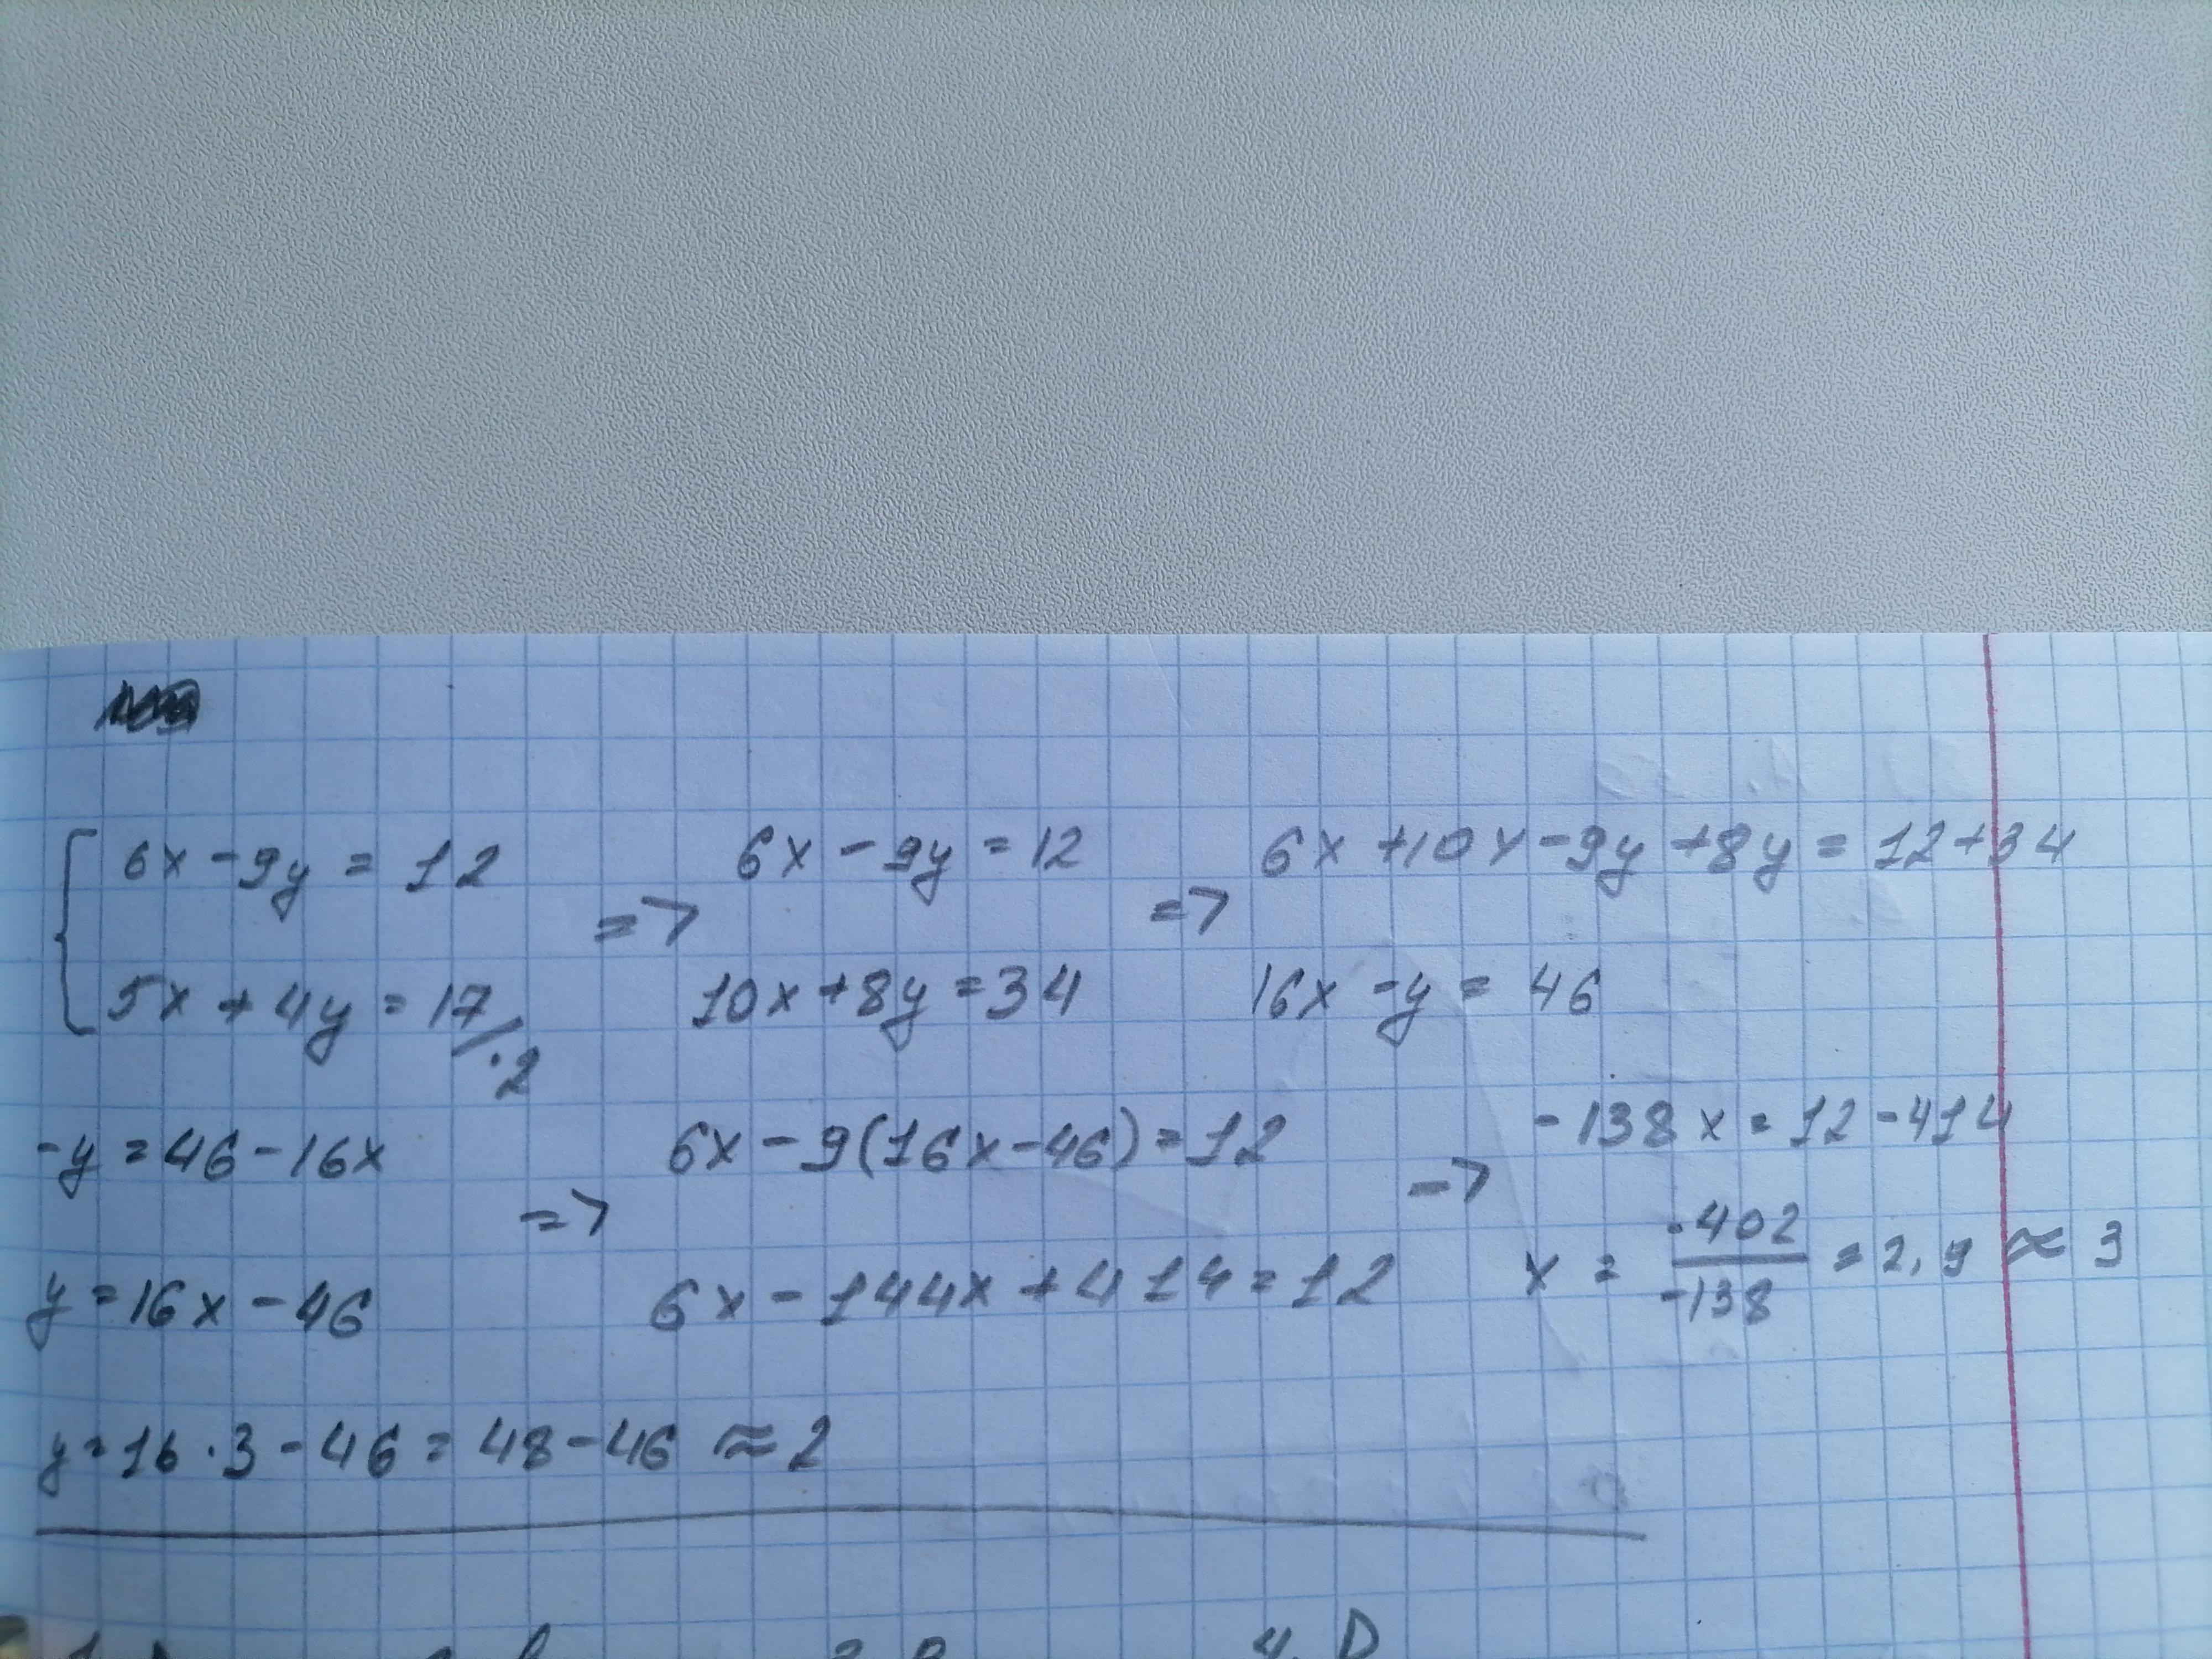 6x - 9y = 12 => 6x - 9y = 12 => 6x + 10x - 9y + 8y = 12 + 34
5x + 4y = 17 /·2 10x + 8y = 34 16x - y = 46
-y = 46 - 16x => 6x - 9(16x - 46) = 12 -> -138x = 12 - 414
y = 16x - 46 6x - 144x + 414 = 12 x = -402/-138 = 2,9 ≈ 3
y = 16 · 3 - 46 = 48 - 46 ≈ 2
4. D